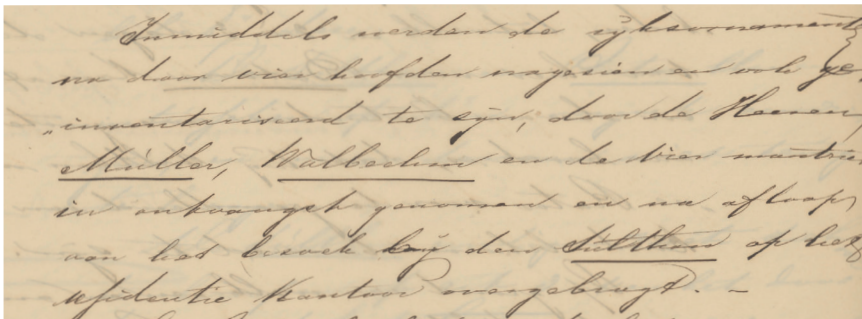 Inmiddels werden de ryksornament
na door vier hoofden nagezien en ook ge
"inventariseerd te zyn, door de Heeren,
Müller, Walbeehm en de vier mantries
in ontvangst genomen en na afloop
van het bezoek by den Sulthan op het
residentie kantoor overgebragt. –